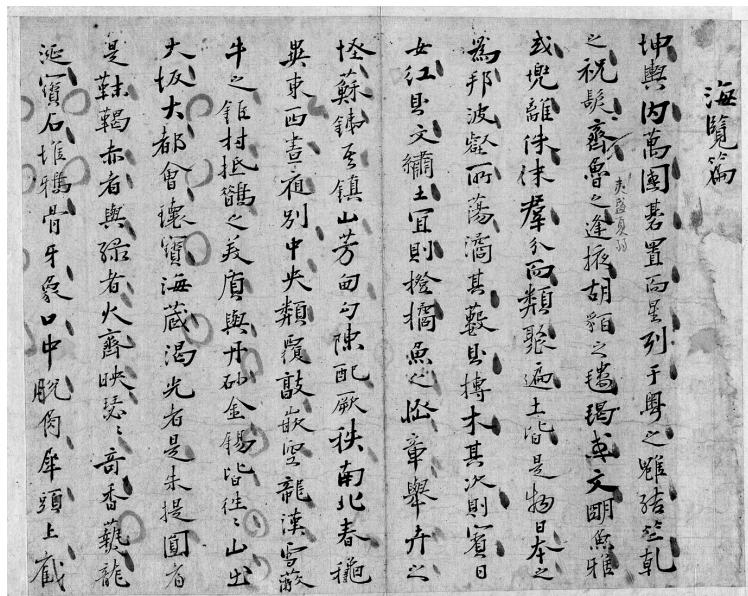 海覽篇
坤輿內萬國碁置而星列于粵之雖結竺乾
之祝髮齊魯之逢掖胡貊之氈毼或文明魚雅
或兜離侏佅羣分而類聚遍土皆是物日本之
爲邦波壑所蕩潏其藪則搏木其次則賓日
女紅則文繡土宜則橙橘魚之恠章舉卉之
怪蘇鐵其鎮山芳甸勾陳配厥秩南北春穐
異東西晝夜別中央類覆敦嵌空龍漢雪蔽
牛之鉅材抵鵲之美質與丹砂金錫皆往〻山出
大坂大都會瓌寶海藏渴光者是朱提圓者
是靺鞨赤者與綠者火齊映瑟〻奇香爇龍
涎寶石堆鴉骨牙象口中脫角犀頭上截